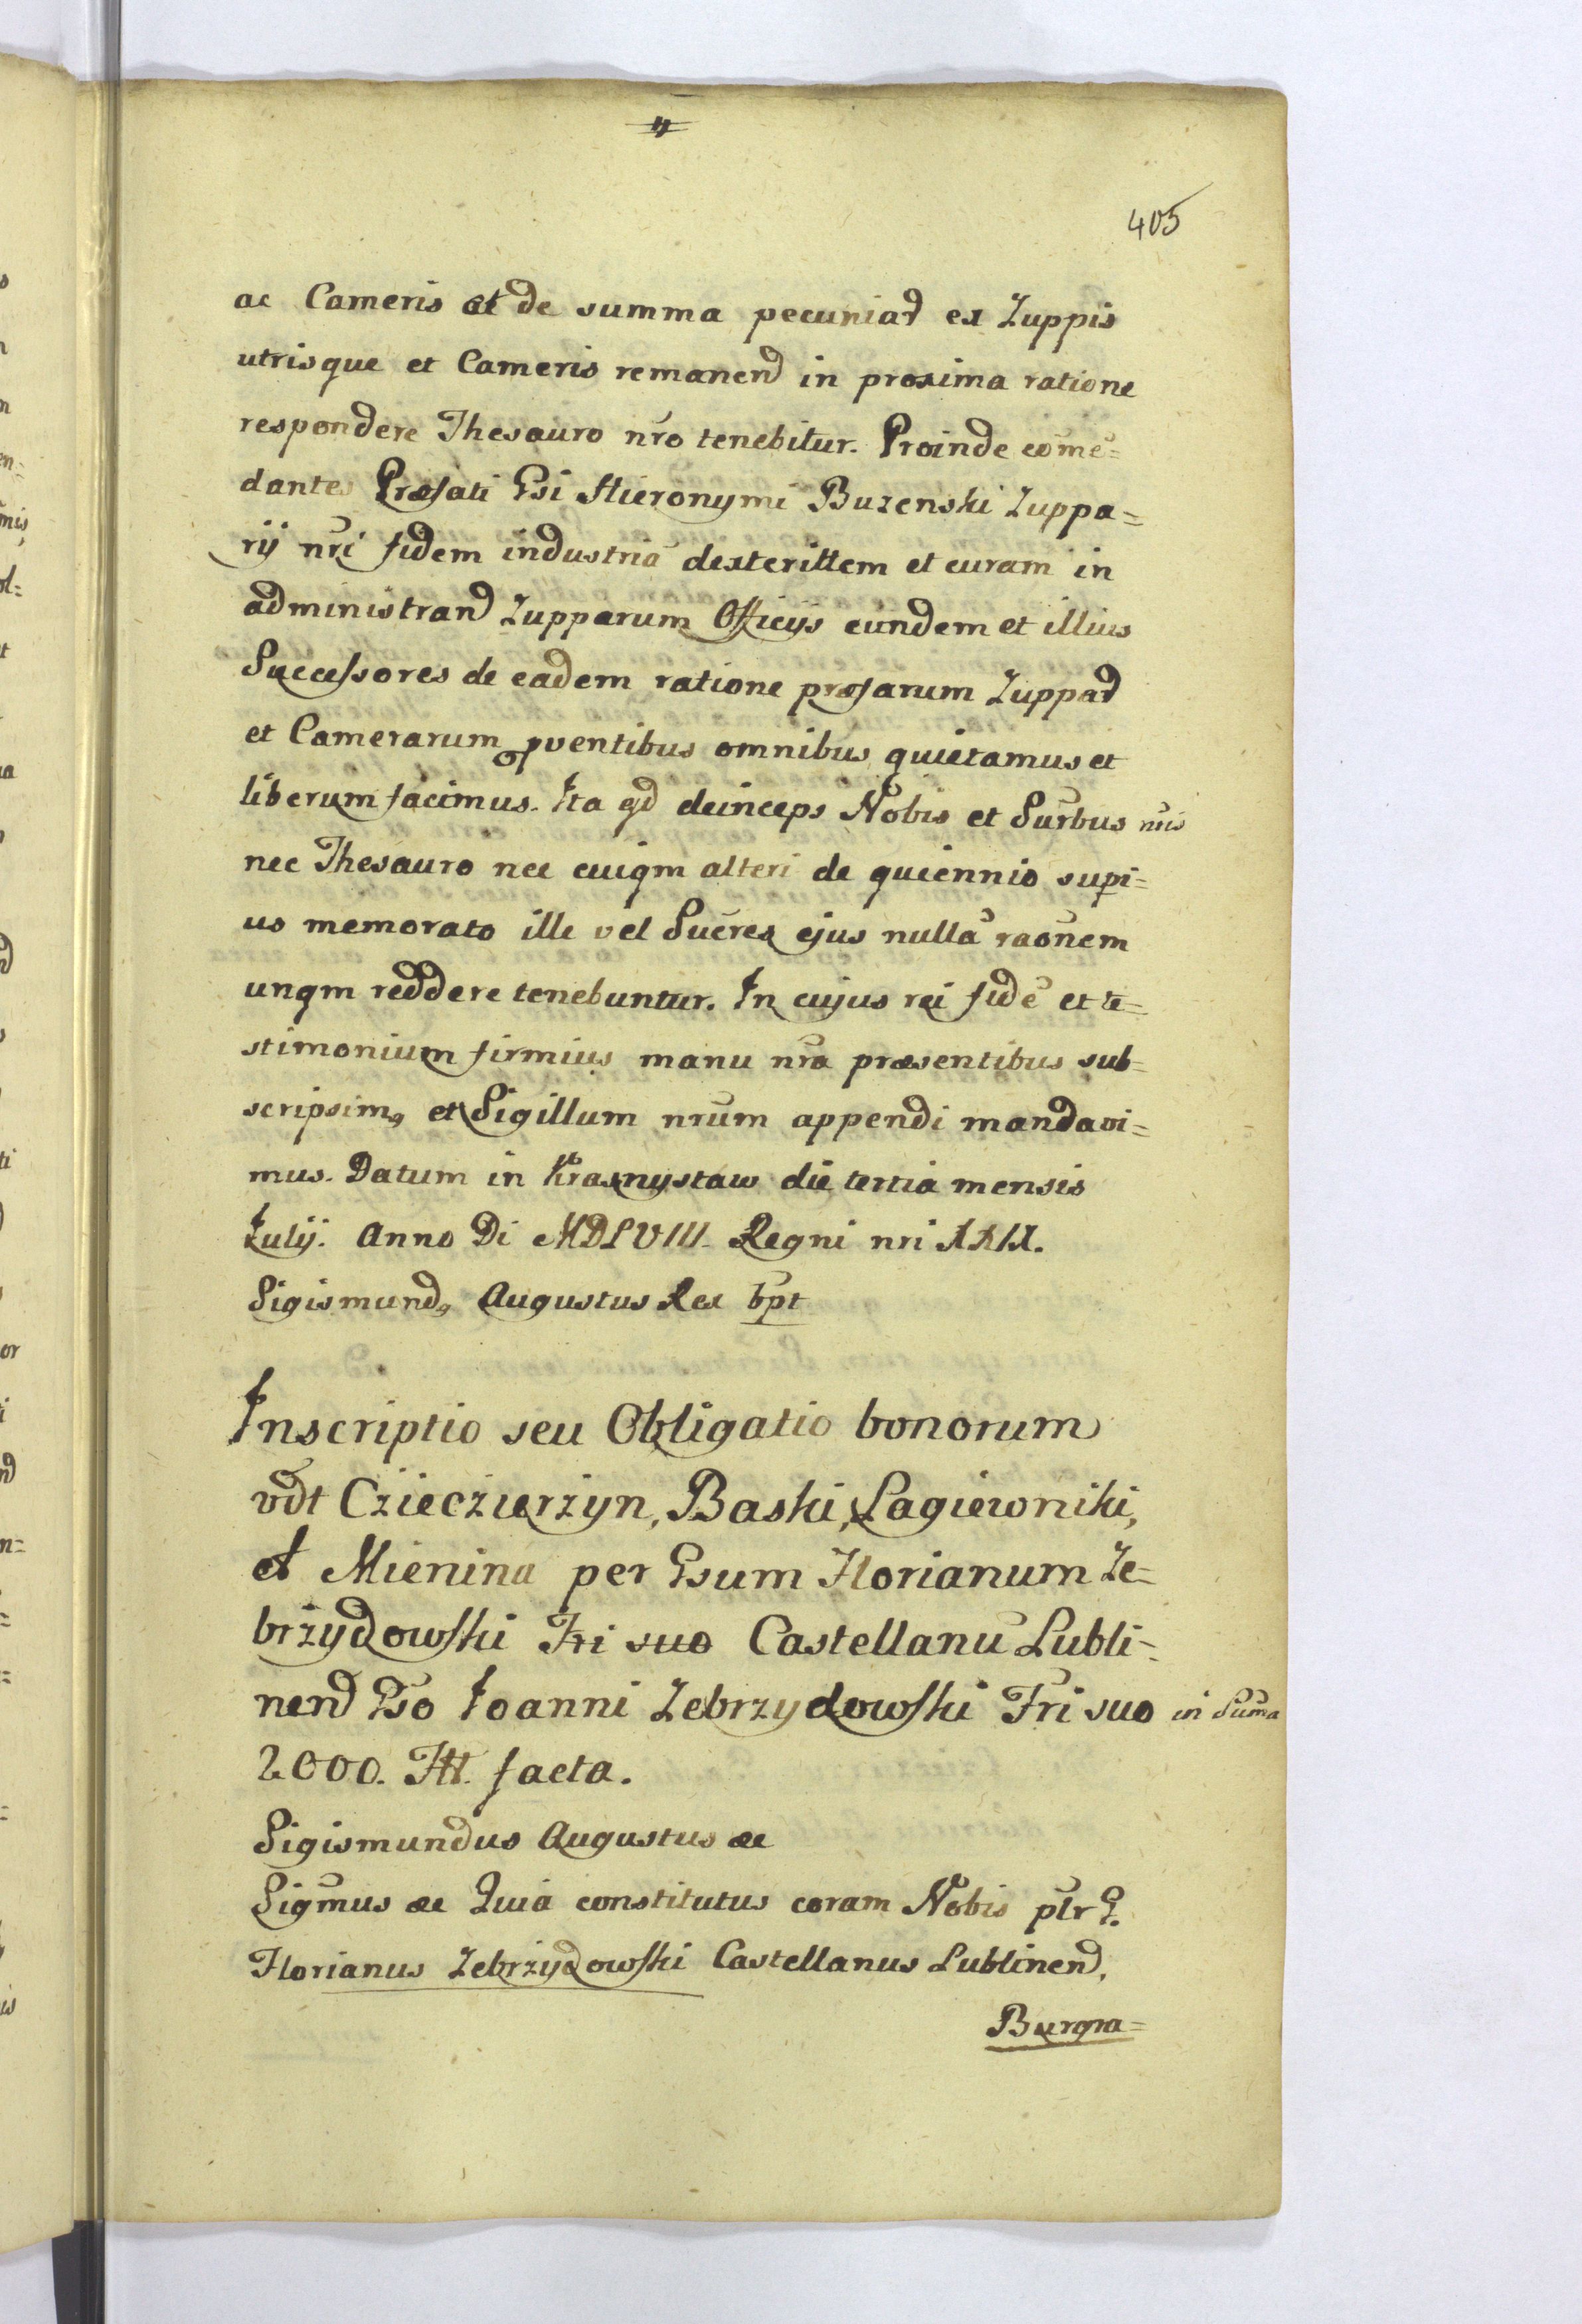 405
ac Cameris et de summa pecuniaꝝ ex Zuppis
utrisque et Cameris remanenꝺ in proxima ratione
respondere Thesauro nr̃o tenebitur. Proinde com̃e=
dantes Præfati Gsi Hieronymi Buzenski Zuppa=
rij nr̃i fidem industriã dexterittem et curam in
administranꝺ Zupparum Officijs eundem et illius
Successores de eadem ratione præfarum Zuppaꝝ
et Camerarum pventibus omnibus quietamus et
liberum facimus. Ita qd deinceps Nobis et Sur̃bus nr̃is
nec Thesauro nec cuiqm alteri de quiennio supi=
us memorato ille vel Suc̃res ejus nullã raõnem
unqm reddere tenebuntur. In cujus rei fidẽ et te=
stimonium firmius manu nr̃a præsentibus sub=
scripsimꝰ et Sigillum nrum appendi mandavi=
mus. Datum in Krasnystaw die tertia mensis
Julij. Anno Di MDLVIII. Regni nri XXIX.
Sigismundꝰ Augustus Rex b̃pt
Inscriptio seu Obligatio bonorum
vdt Czieczierzyn, Baski, Lagiewniki,
et Mienina per Gsum Florianum Ze=
brzydowski Fri suo Castellanũ Lubli=
nenꝺ Gso Joanni Zebrzydowski Fr̃i suo in Sum̃a
2000. Fl. facta.
Sigismundus Augustus &c
Sigm̃us &c Quia constitutus coram Nobis pl̃r G.
Florianus Zebrzydowski Castellanus Lublinenꝺ,
Burgra=